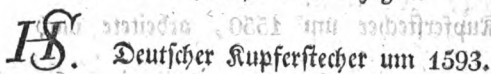 HS. Deutſcher Kupferſtecher um 1593.